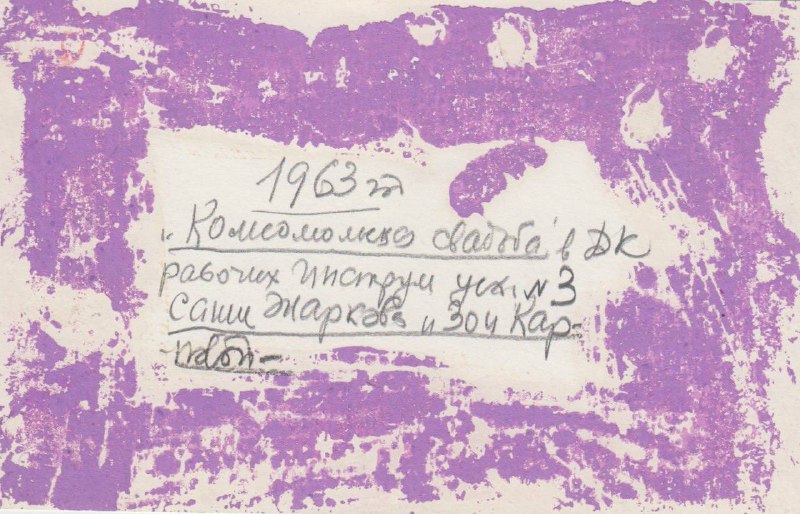 1963 г
„Комсомольская свадьба" в ДК
рабочих инструм цех. № 3
Саши Жаркова и Зои Кар-
повой-